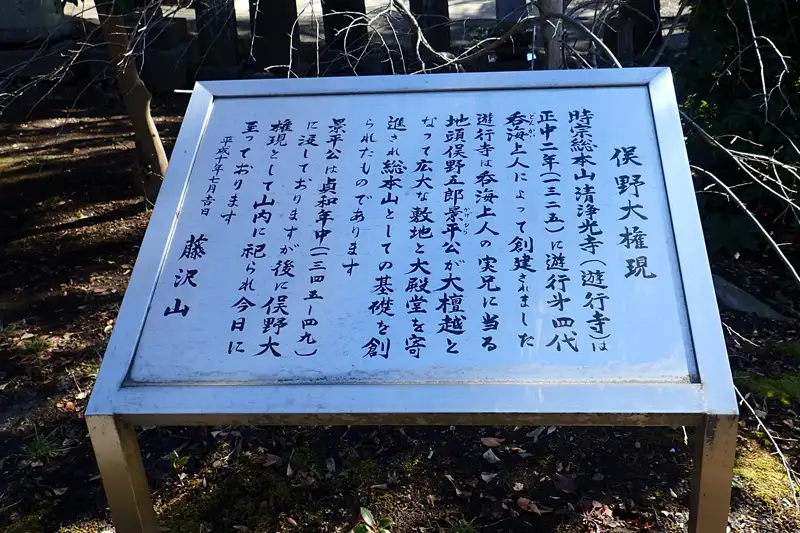 俣野大権現
時宗総本山清浄光寺(遊行寺)は
正中二年(一三二五)に遊行第四代
呑海上人によって創建されました
遊行寺は呑海上人の実兄に当る
地頭俣野五郎景平公が大檀越と
なって広大な敷地と大殿堂を寄
進され総本山としての基礎を創
られたものであります
景平公は貞和年中(一三四五-四九)
に没しておりますが後に俣野大
権現として山内に祀られ今日に
至っております
平成十年七月吉日
藤沢山